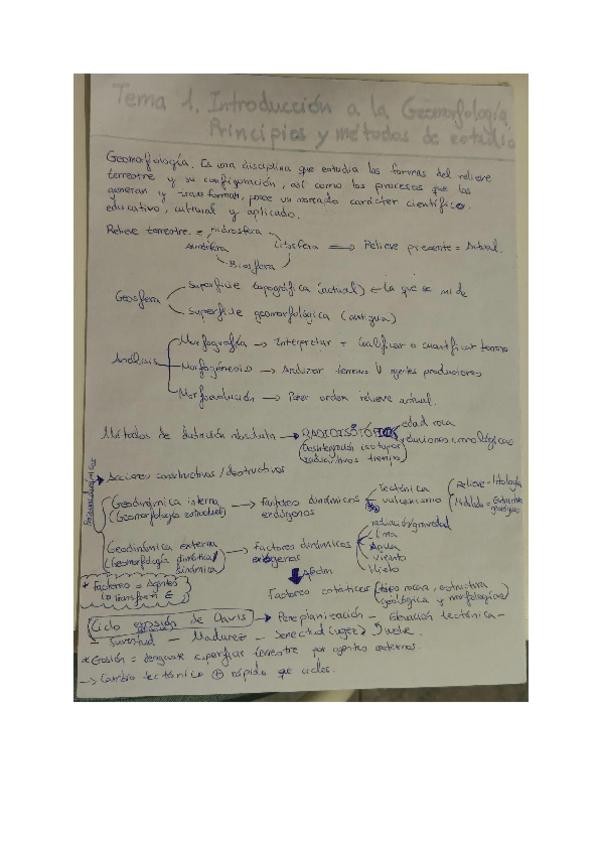 Tema 1. Introducción a la Geomorfología.
Principios y métodos de estudio
Geomorfología. Es una disciplina que estudia las formas del relieve
terrestre y su configuración, así como los procesos que las
generan y transforman, posee un marcado carácter científico,
educativo, cultural y aplicado.
Relieve terrestre = Hidrosfera
Atmósfera Litosfera => Relieve presente = Actual.
Biosfera
Geosfera
Superficie topográfica (actual) ← la que se mide
Superficie geomorfológica (antigua)
Análisis
Morfografía → Interpretar = Cualificar o cuantificar terreno
Morfogénesis → Analizar terreno y agentes productores
Morfoevolución → Poner orden relieve actual.
Métodos de datación absoluta → RADIOISÓTOPOS
edad roca
relaciones cronológicas
(Desintegración isótopos
radiactivos tiempo)
→ Acciones constructivas/destructivas
Geodinámica interna
(Geomorfología estructural)
→ Factores dinámicos
endógenos
Tectónica
vulcanismo
Relieve = litología
Geodinámica externa
(Geomorfología climática/
dinámica)
→ Factores dinámicos
exógenos
radiación/gravedad
Agua
viento
Hielo
Factores estáticos (tipo rocas, estructura
geológica y morfologías)
* Factores = Agentes
lo transforman
Ciclo erosión de Davis → Peneplanización - Elevación tectónica -
- Juventud - Madurez - Senectud (vejez)
* Erosión = desgaste superficie terrestre por agentes externos.
→ Cambio tectónico + rápido que ciclos.